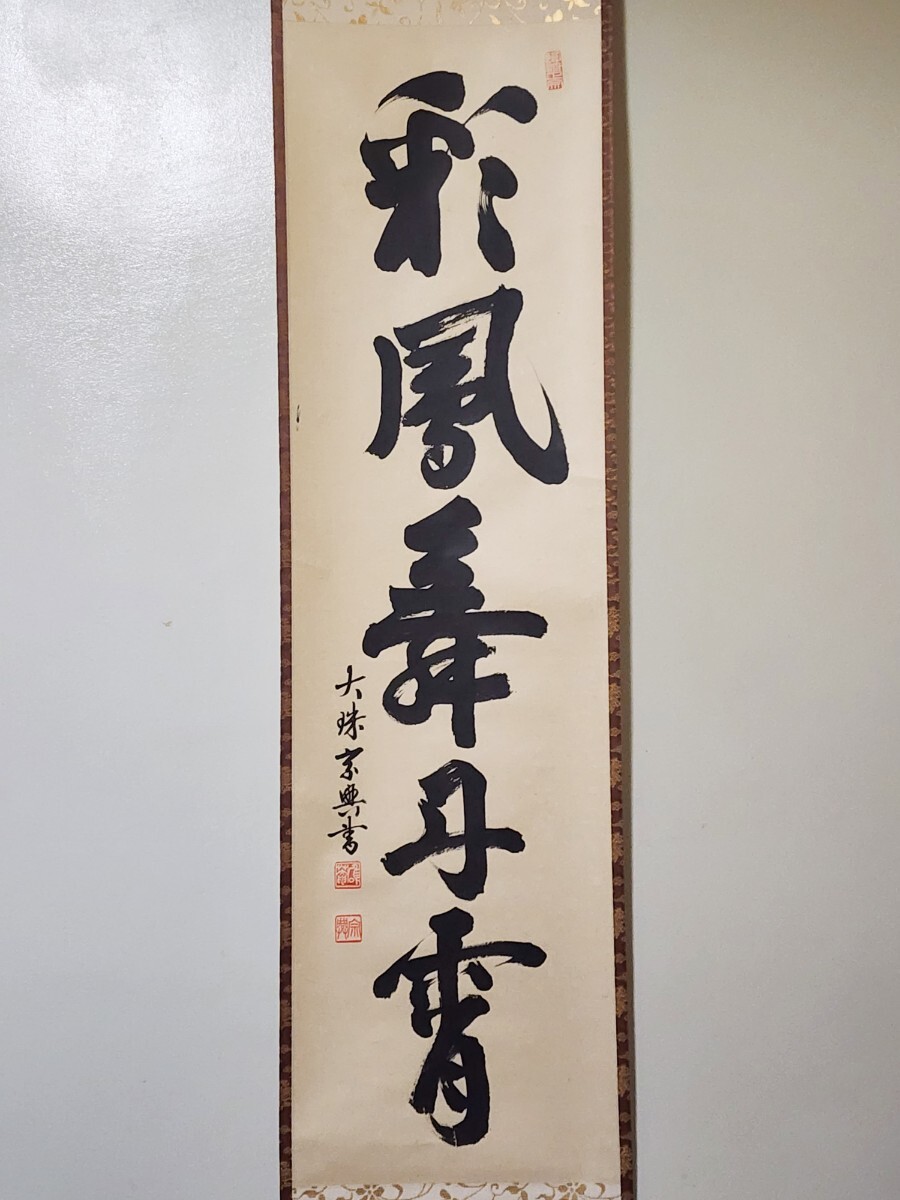 彩鳳舞丹霄
大珠宗興書
宗興